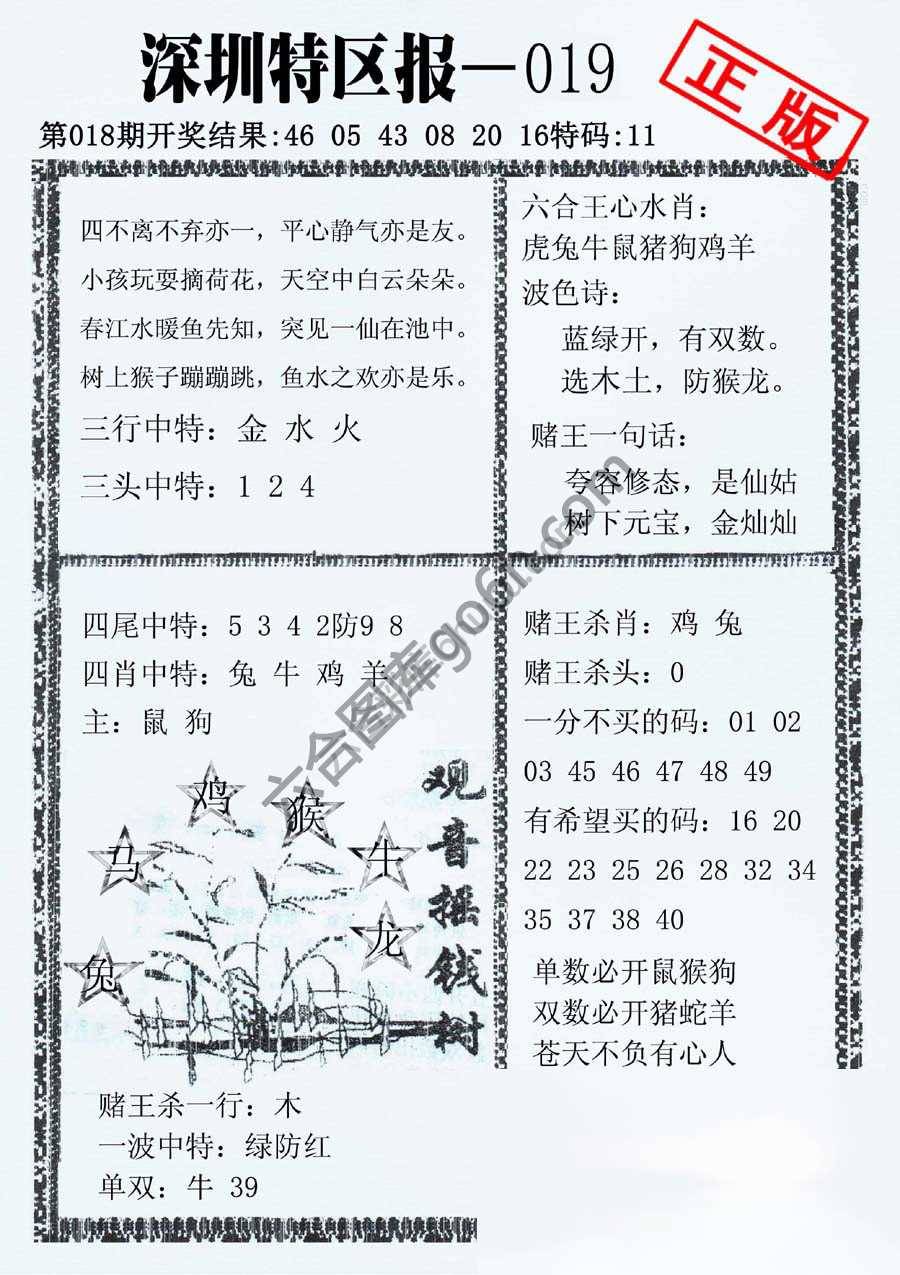 深圳特区报—019
正版
第018期开奖结果:46 05 43 08 20 16特码:11
四不离不弃亦一，平心静气亦是友。
小孩玩耍摘荷花，天空中白云朵朵。
春江水暖鱼先知，突见一仙在池中。
树上猴子蹦蹦跳，鱼水之欢亦是乐。
三行中特：金 水 火
三头中特：1 2 4
六合王心水肖：
虎兔牛鼠猪狗鸡羊
波色诗：
蓝绿开，有双数。
选木土，防猴龙。
赌王一句话：
夸容修态，是仙姑
树下元宝，金灿灿
四尾中特：5 3 4 2防9 8
四肖中特：兔 牛 鸡 羊
主：鼠 狗
鸡
猴
马
牛
龙
兔
观音摇钱树
赌王杀一行：木
一波中特：绿防红
单双：牛 39
赌王杀肖：鸡 兔
赌王杀头：0
一分不买的码：01 02
03 45 46 47 48 49
有希望买的码：16 20
22 23 25 26 28 32 34
35 37 38 40
单数必开鼠猴狗
双数必开猪蛇羊
苍天不负有心人
六合图库go6h.com